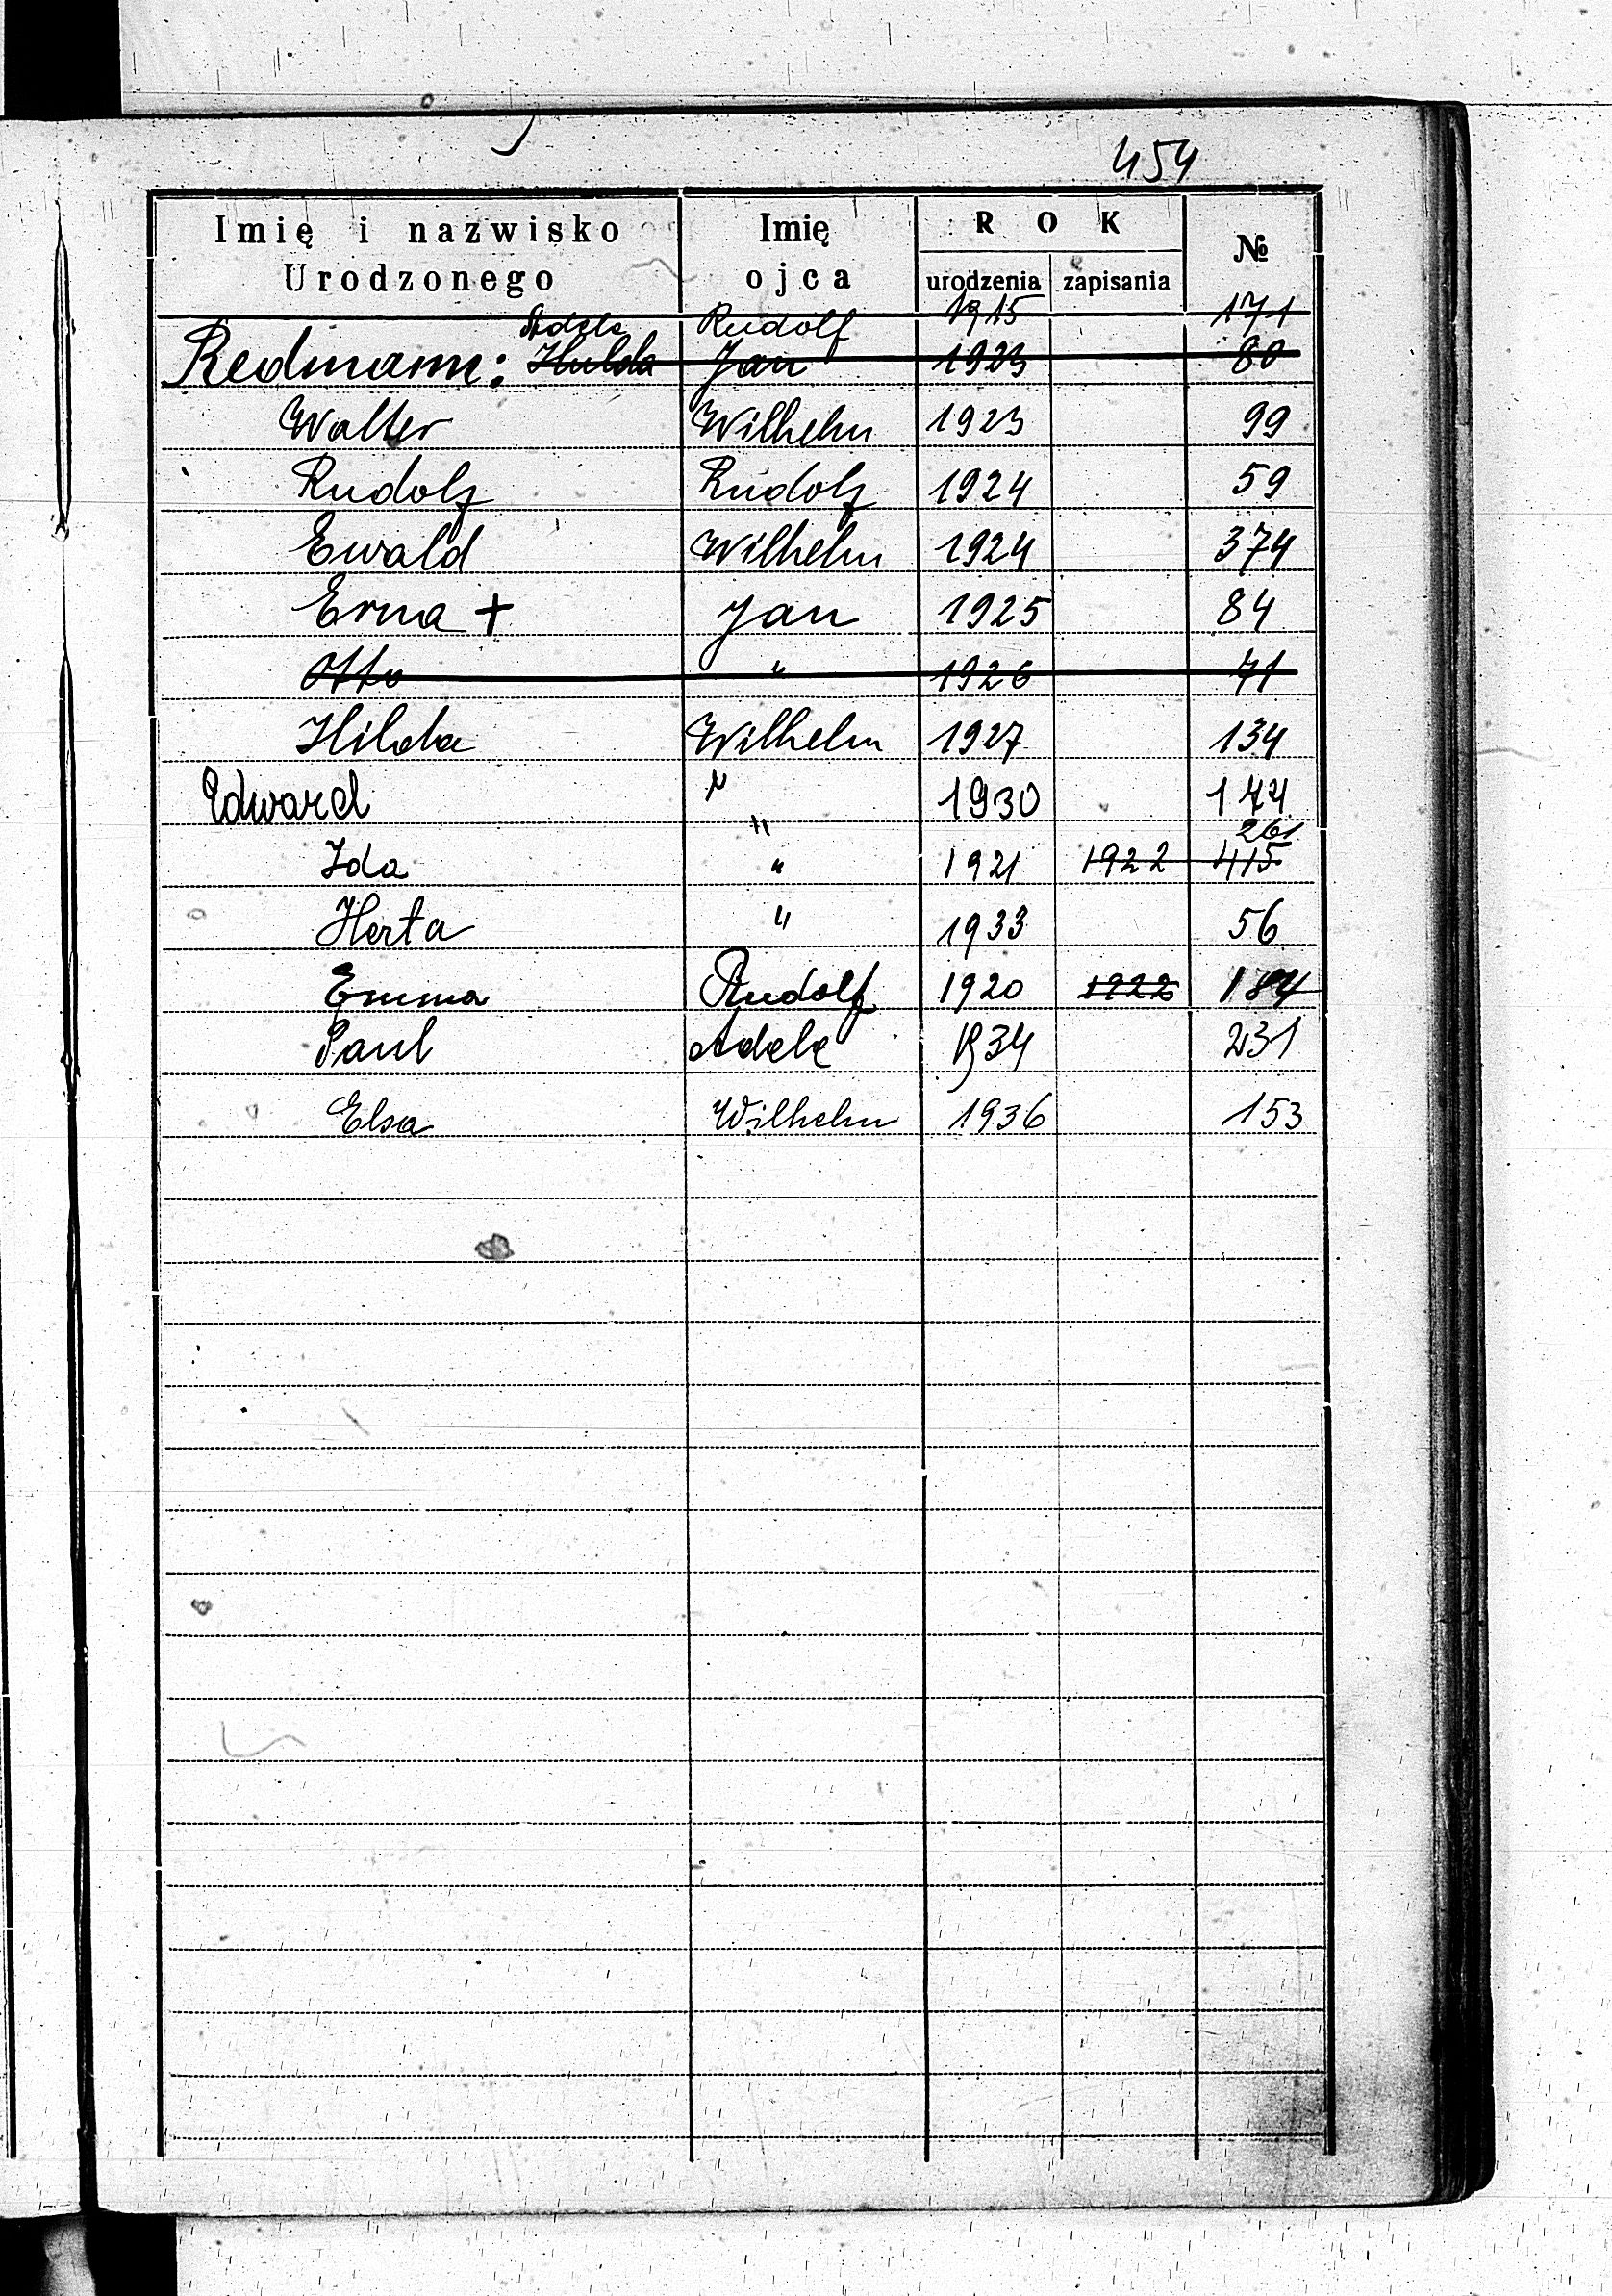 454
Imię i nazwisko Urodzonego Imię ojca ROK №
urodzenia zapisania
Adela Rudolf 1915 171
Redmann: Hulda Jan 1923 80
Walter Wilhelm 1923 99
Rudolf Rudolf 1924 59
Ewald Wilhelm 1924 374
Erna + Jan 1925 84
Otto " 1926 71
Hilda Wilhelm 1927 134
Edward " 1930 144
" 261
Ida " 1921 1922 415
Herta " 1933 56
Emma Rudolf 1920 1922 184
Paul Adele 1934 231
Elsa Wilhelm 1936 153